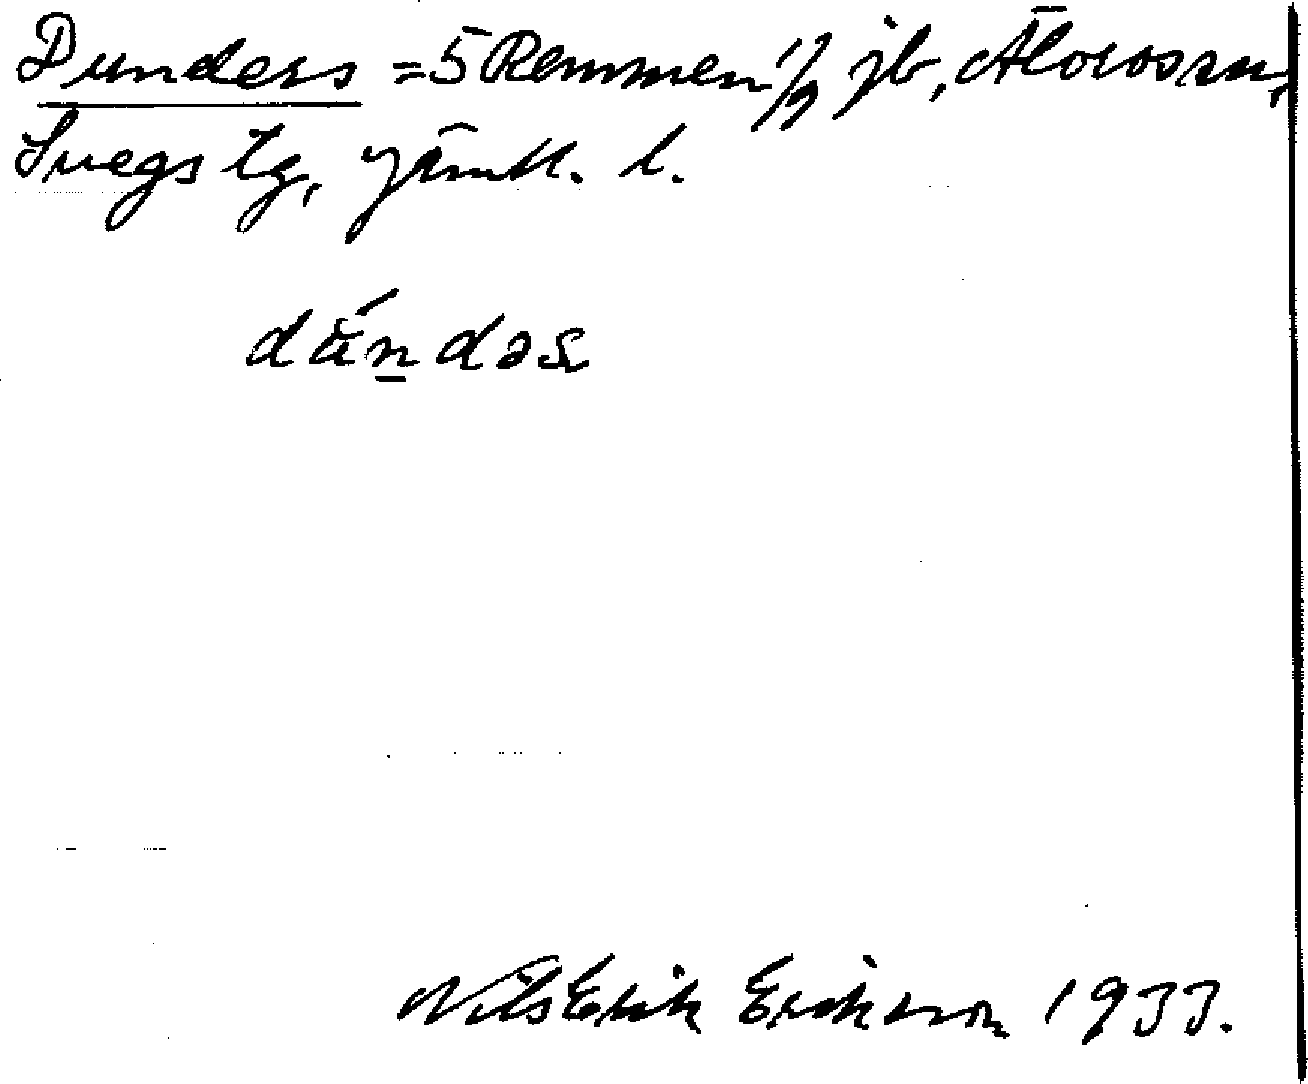 Dunders = 5 Remmen 1/9 jb, Älvros sn,
Svegs tg, Jämtl. l.
dä́ndəs
Nils Erik Erikson 1933.